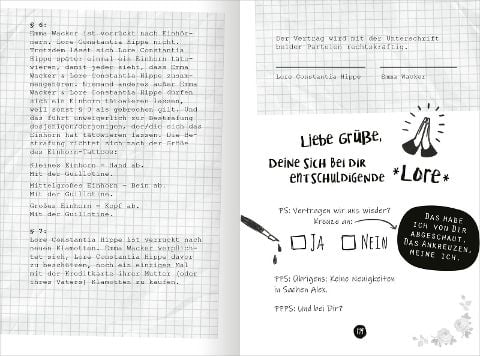 § 6:
Emma Wacker ist verrückt nach Einhör-
nern. Lore Constantia Hippe nicht.
Trotzdem lässt sich Lore Constantia
Hippe später einmal ein Einhorn täto-
wieren, damit jeder sieht, dass Emma
Wacker & Lore Constantia Hippe zusam-
mengehören. Niemand anderes außer Emma
Wacker & Lore Constantia Hippe dürfen
sich ein Einhorn tätowieren lassen,
weil sonst § 6 als gebrochen gilt. Und
das führt unweigerlich zur Bestrafung
desjenigen/derjenigen, der/die sich das
Einhorn hat tätowieren lassen. Die Be-
strafung richtet sich nach der Größe
des Einhorn-Tattoos:
Kleines Einhorn = Hand ab.
Mit der Guillotine.
Mittelgroßes Einhorn = Bein ab.
Mit der Guillotine.
Großes Einhorn = Kopf ab.
Mit der Guillotine.
§ 7:
Lore Constantia Hippe ist verrückt nach
neuen Klamotten. Emma Wacker verpflich-
tet sich, Lore Constantia Hippe davor
zu beschützen, noch ein einziges Mal
mit der Kreditkarte ihrer Mutter (oder
ihres Vaters) Klamotten zu kaufen.
Der Vertrag wird mit der Unterschrift
beider Parteien rechtskräftig.
Lore Constantia Hippe Emma Wacker
Liebe Grüße,
Deine sich bei dir
entschuldigende *Lore*
PS: Vertragen wir uns wieder?
Kreuze an:
Ja Nein
Das habe
ich von dir
abgeschaut.
Das Ankreuzen,
meine ich.
PPS: Übrigens: Keine Neuigkeiten
in Sachen Alex.
PPPS: Und bei Dir?